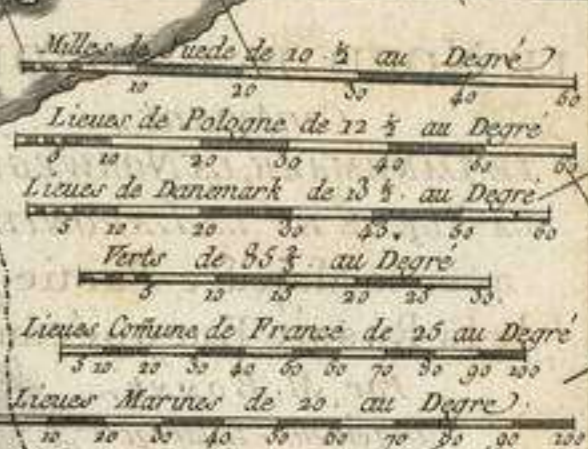 Milles de Suede de 10 ½ au Degré
10 20 30 40 50
Lieues de Pologne de 12 ½ au Degré
5 10 20 30 40 50 60
Lieues de Danemark de 13 ½ au Degré
5 10 20 30 45 50 60
Verts de 85 ¾ au Degré
5 10 15 20 25 35
Lieues Com̃une de France de 25 au Degré
5 10 20 30 40 50 60 70 80 90 100
Lieues Marines de 20 au Degre
10 20 30 40 50 60 70 80 90 100